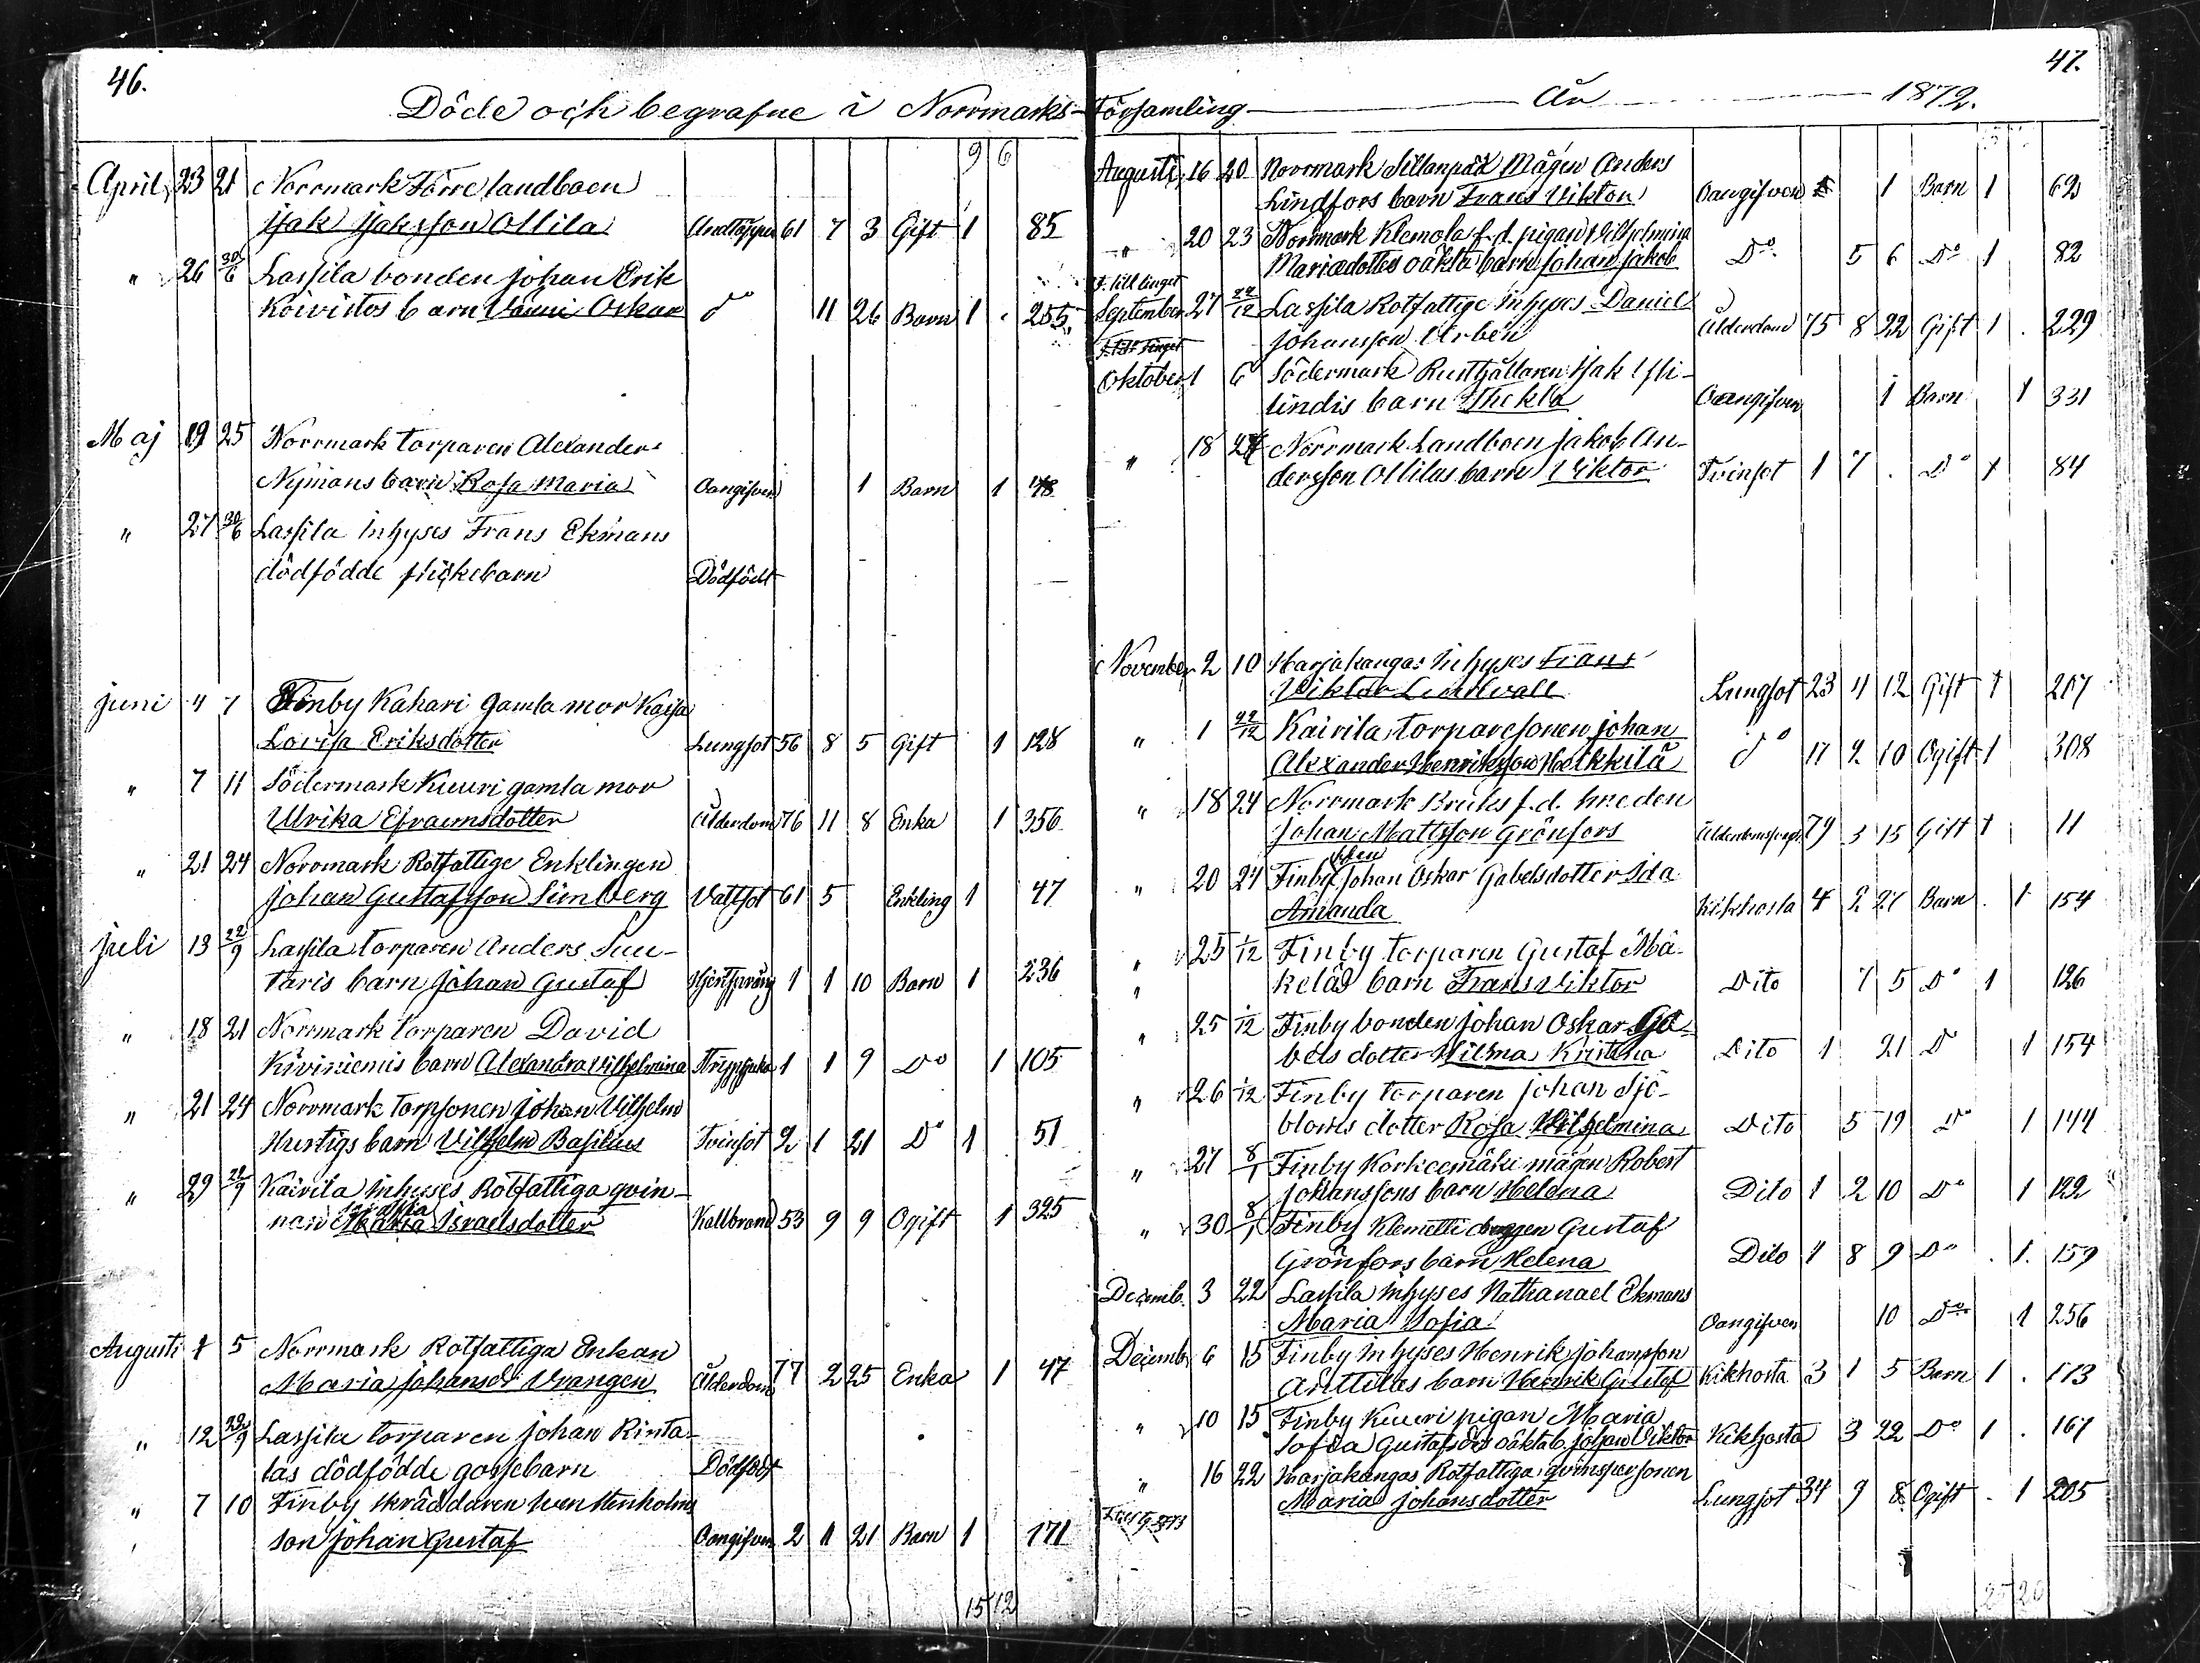 46.
Döde och begrafne i Norrmarks
9 6
April 23 21 Norrmark Torre landboen
Isak Isaksson Ollila Andtäppa 61 7 3 Gift 1 85
" 26 30/6 Lassila bonden Johan Erik
Koivistos barn Oskar do 11 26 Barn 1 255
Maj 19 25 Norrmark torparen Alexander
Nymans barn Rosa Maria Oangifven 1 Barn 1
" 27 30/6 Lassila Inhyses Frans Ekmans
dödfödde flickebarn Dödfödt
Juni 4 7 Finby Kahari gamla mor Kaisa
Lovisa Eriksdotter Lungsot 56 8 5 Gift 1 128
" 7 11 Södermark Kuuri gamla mor
Ulrika Efraemsdotter Ålderdom 76 11 8 Enka 1 356
" 21 24 Norrmark Rotfattige Enklingen
Johan Gustafsson Simberg Vattsot 61 5 Enkling 1 47
Juli 13 22/9 Lassila torparen Anders Suu-
taris barn Johan Gustaf 1 1 10 Barn 1 236
" 18 21 Norrmark torparen David
Kiviniemis barn Alexandra Vilhelmina Strypsjuka 1 1 9 Do 1 105
" 21 24 Norrmark Torpsonen Johan Vilhelm
Hurtigs barn Vilhelm Basilius Tvinsot 2 1 21 Do 1 51
" 29 22/9 Kairila Inhyses Rotfattiga qvin-
nan Israelsdotter Kallbrand 53 9 9 Ogift 1 325
Augusti 1 5 Norrmark Rotfattiga Enkan
Maria Johansdr Vrangen Ålderdom 77 2 25 Enka 1 47
" 12 22/9 Lassila torparen Johan Rinta-
las dödfödde gossebarn Dödfödt
" 7 10 Finby skräddaren Wenstenholms
son Johan Gustaf Oangifven 2 11 21 Barn 1 171
15 12
47.
Församling År 1872.
Augusti 16 20 Norrmark Sillanpää Mågen Anders
Lindfors barn Frans Viktor Oangifven 1 Barn 1 62
" 20 23 Norrmark Klemola f.d. pigan Vilhelmina
Mariædotters oäkta barn Johan Jakob Do 5 6 Do 1 82
September 27 22/12 Lassila Rotfattige Inhyses Daniel
Johansson Urbén Ålderdom 75 8 22 Gift 1 229
Oktober 1 6 Södermark Rusthållaren Isak Isli-
lindis barn Thekla Oangifven 1 Barn 1 331
" 18 27 Norrmark Landboen Jakob An-
dersson Ollilas barn Viktor Tvinsot 1 7 Do 1 84
November 2 10 Harjakangas Inhyses Frans
Viktor Lindvall Lungsot 23 11 12 Gift 1 207
" 1 22/12 Kairila torparesonen Johan
Alexander Henriksson Heikkilä do 17 2 10 Ogift 1 308
" 18 24 Norrmark Bruks f.d. smeden
Johan Mattsson Grönfors 79 3 15 Gift 1 11
" 20 24 Finby Johan Oskar Gabelsdotter Ida
Amanda Kikhosta 4 2 27 Barn 1 154
" 25 1/12 Finby torparen Gustaf Mä-
keläs barn Frans Viktor Dito 7 5 Do 1 126
" 25 1/12 Finby bonden Johan Oskar Ga-
bels dotter Hilma Kristina Dito 1 21 Do 1 154
" 26 1/12 Finby torparen Johan Sjö-
bloms dotter Rosa Wilhelmina Dito 5 19 Do 1 144
" 27 8/1 Finby Korkeemäki mågen Robert
Johanssons barn Helena Dito 1 2 10 Do 1 122
" 30 8/1 Finby Klemetti drängen Gustaf
Grönfors barn Helena Dito 1 8 9 Do 1 159
Decemb. 3 22 Lassila Inhyses Nathanael Ekmans
Maria Sofia Oangifven 10 Do 1 256
Decemb. 6 15 Finby Inhyses Henrik Johansson
Anttilas barn Henrik Gustaf Kikhosta 3 1 5 Barn 1 113
" 10 15 Finby Kuuri pigan Maria
Sofia Gustafsdrs oäkta b. Johan Viktor Kikhosta 3 22 Do 1 167
" 16 22 Harjakangas Rotfattiga qvinspersonen
Maria Johansdotter Lungsot 34 9 8 Ogift 1 205
25 20